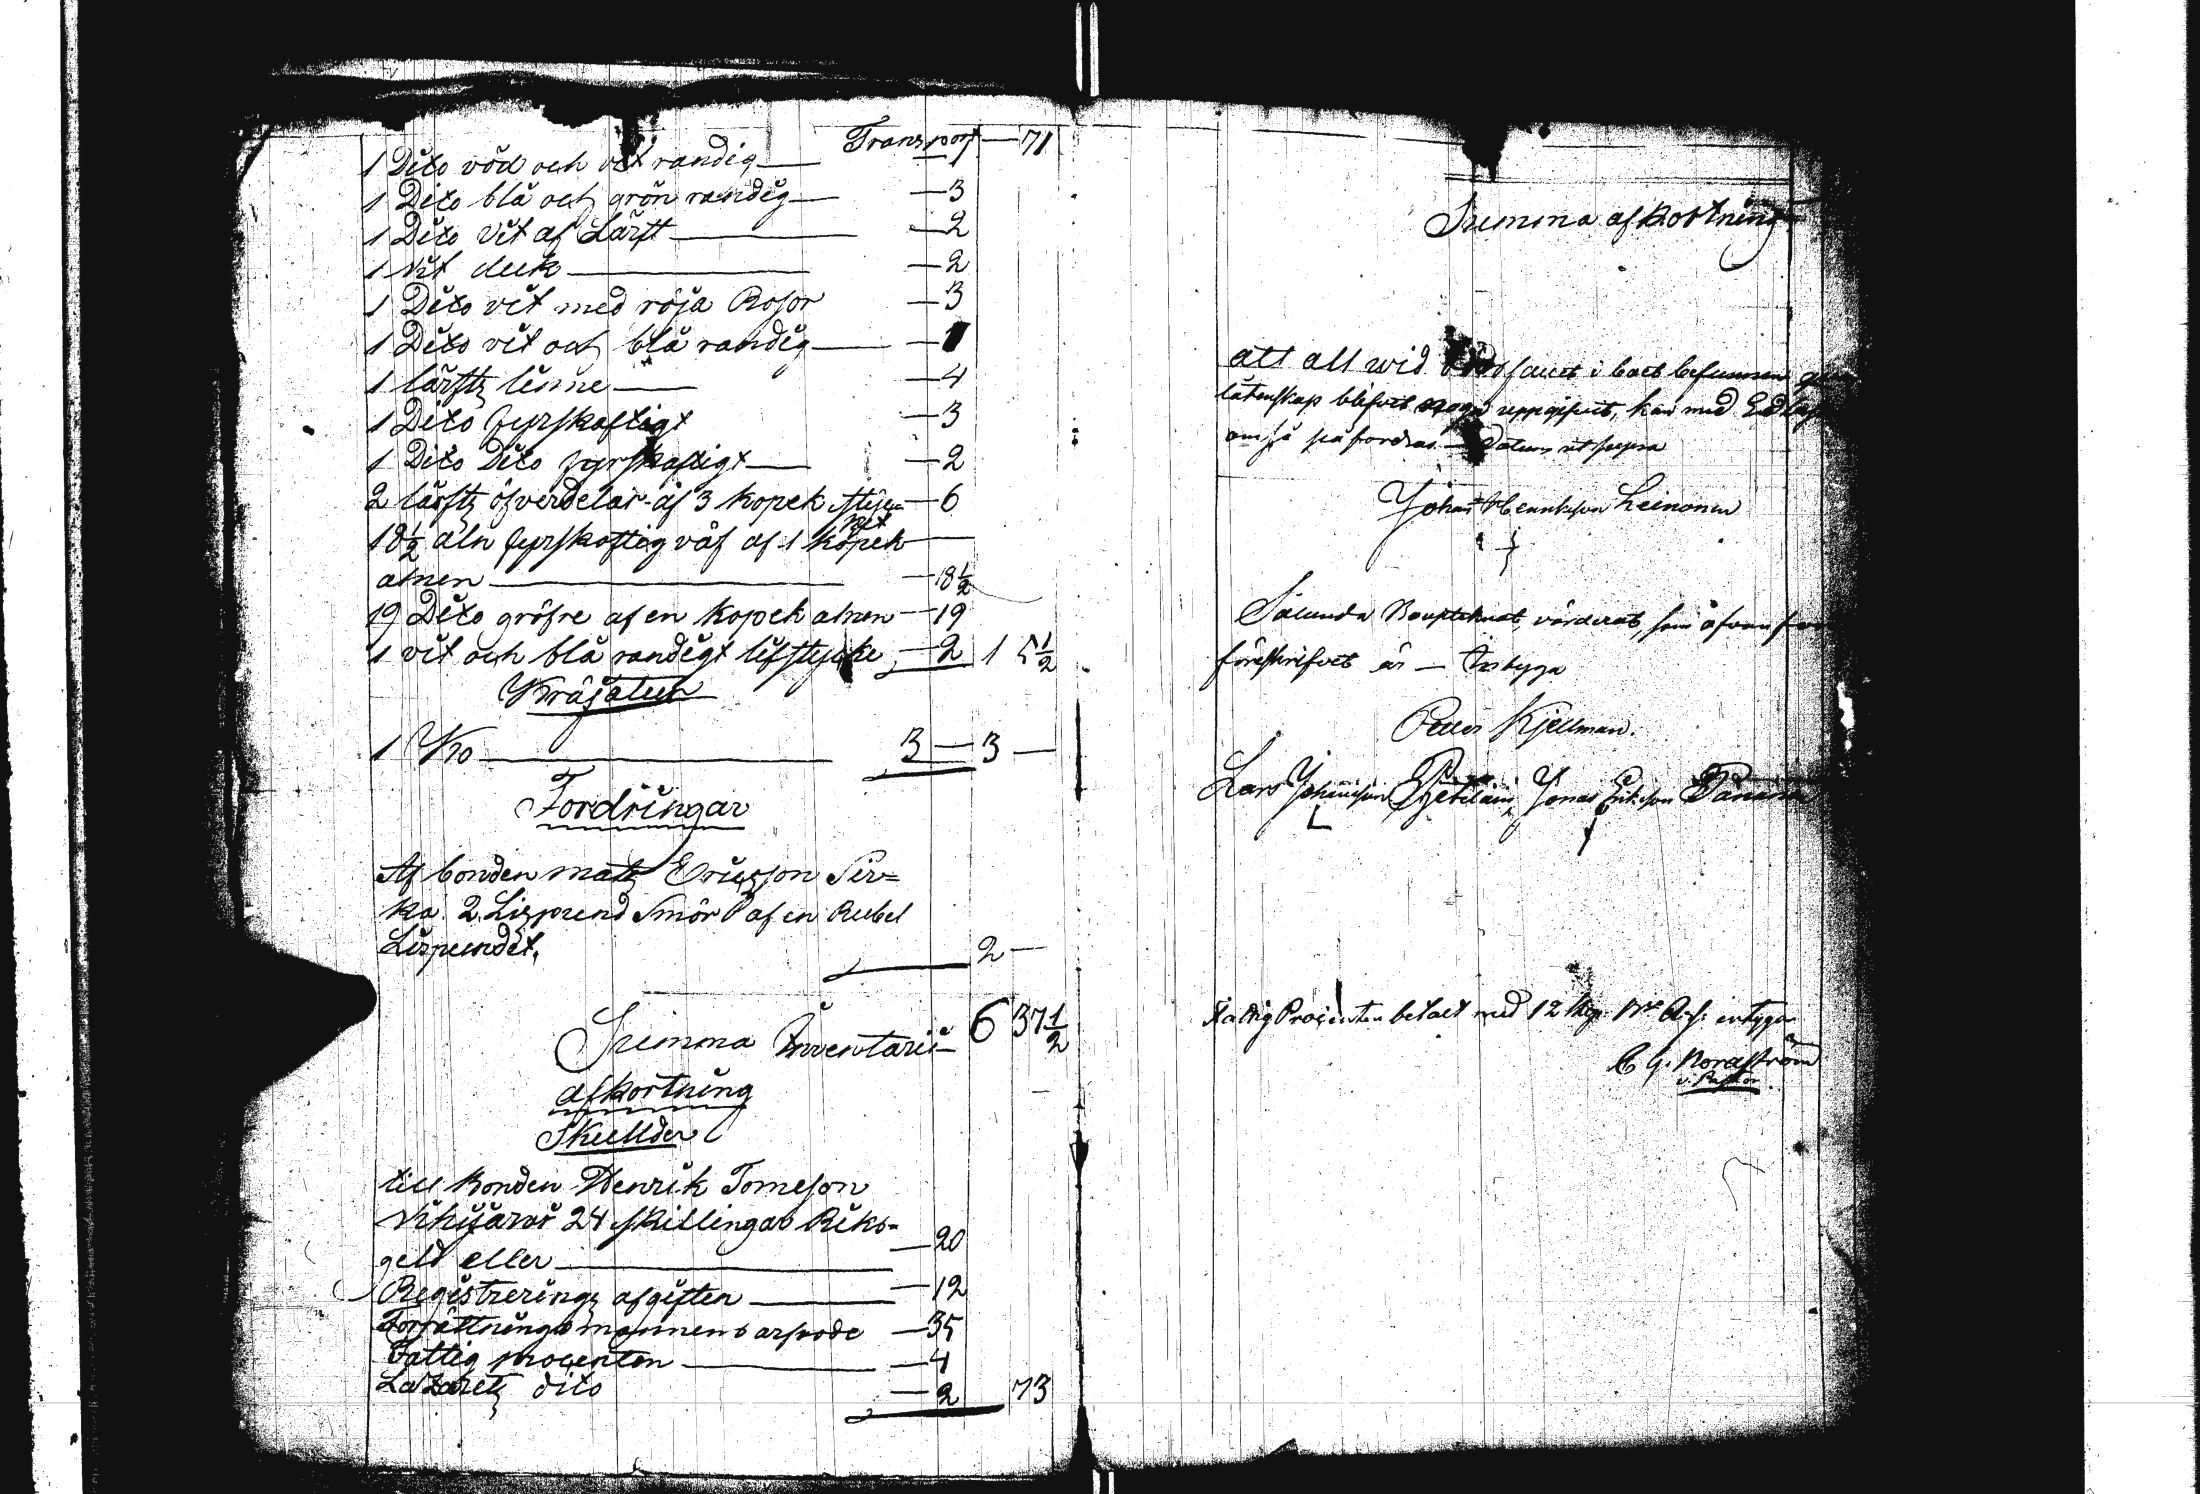 Transport — 71
1 Dito röd och vit randig —
1 Dito blå och grön randig — — 3
1 Dito vit af Lärft — — 2
1 vit duk — — 2
1 Dito vit med röja Rosor — 3
1 Dito vit och blå randig — — 1
1 lärftz linne — — 4
1 Dito fyrskaftigt — 3
1 Dito Dito fyrskaftigt — — 2
2 lärftz öfverdelar af 3 kopek stycket — 6
18½ aln fyrskaftig väf af 1 kopek —
alnen — — 18½
19 Dito gröfre af en kopek alnen — 19
1 vit och blå randigt lifstycke — 2 1 5½
Kräjatur
1 Ko — 3 — 3 —
Fordringar
Af bonden matz Ericsson Sir=
ka 2 Lizpund Smör af en Rubel
Lizpundet. 2 —
Summa Inventarii 6 37½
afkortning
Skullder
till Bonden Henrik Tomeson
Vihijärvi 24 skillingar Riks-
geld eller — — 20
Registreringz afgiften — — 12
Förrättnings mannens arfvode — 35
Fattig procenten — — 4
Lazaretz dito — 2 73
Summa afkortning
att all wid i boet befunnen
låtenskap blifvit noga uppgifvit, kan med Ed
om så påfordras. — Datum ut supra
Johan Henriksson Leinonen
Sålunda Bouptecknat, värderat, som ofvan
föreskrifvet är — Intyga
Petter Kjellman.
Lars Johansson Jonas Eriksson
Fattig Procenten betalt med 12 kop. intygar
C G. Nordström
v. Pastor